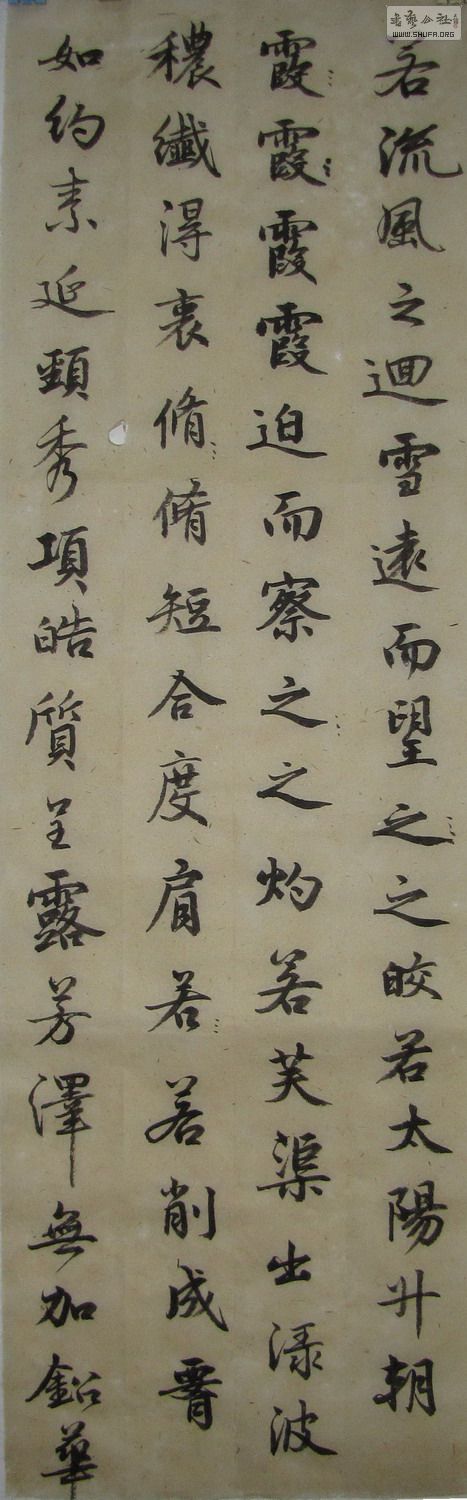 書藝公社
WWW.SHUFA.ORG
若流風之迴雪遠而望之之皎若太陽升朝
霞霞霞霞迫而察之之灼若芙渠出渌波
穠纖得衷脩脩短合度肩若若削成腰
如約素延頸秀項皓質呈露芳澤無加鉛華